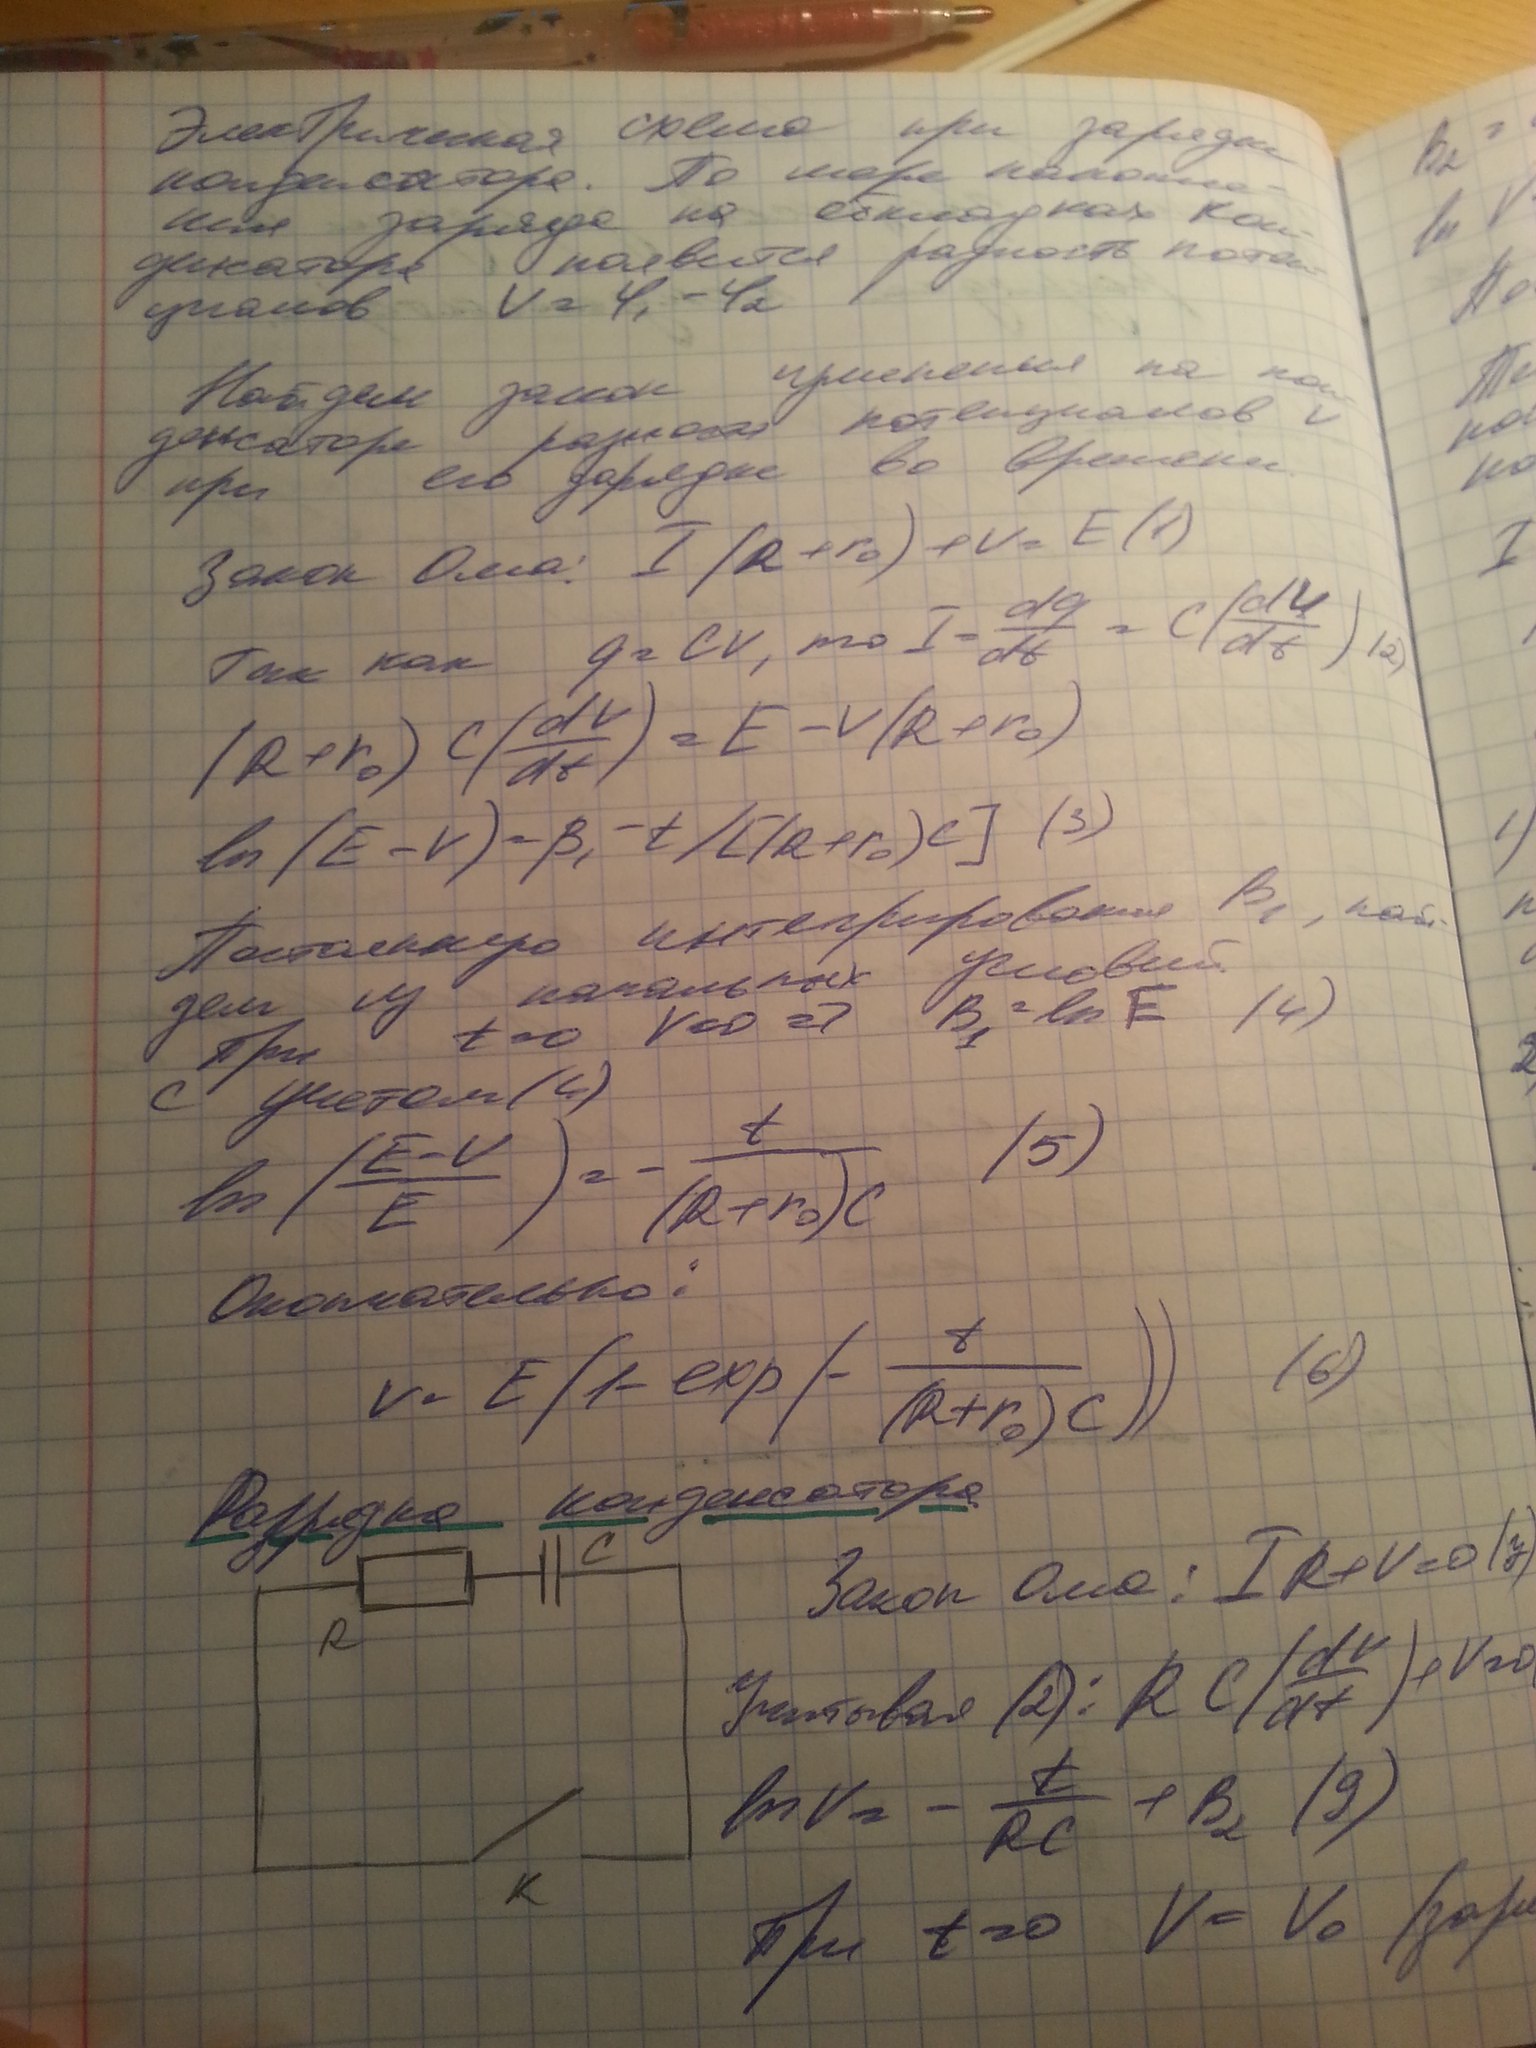 Электрическая схема при зарядке
конденсатора. По мере накопле-
ния заряда на обкладках кон-
денсатора появится разность потен-
циалов V = φ₁ - φ₂
Найдем закон изменения на кон-
денсаторе разности потенциалов V
при его зарядке во времени.
Закон Ома: I(R+r₀)+V= E (1)
Так как q = CV, то I = dq/dt = C(dV/dt) (2)
(R+r₀) C(dV/dt) = E - V(R+r₀)
ln(E-V) = B₁ - t/[(R+r₀)C] (3)
Постоянную интегрирования B₁, най-
дем из начальных условий.
При t=0 V=0 => B₁ = ln E (4)
С учетом (4)
ln((E-V)/E) = - t/((R+r₀)C) (5)
Окончательно:
V = E(1- exp(- t/((R+r₀)C))) (6)
Разрядка конденсатора
C
R
K
Закон Ома: IR+V=0 (7)
Учитывая (2): RC(dV/dt)+V=0
ln V = - t/RC + B₂ (9)
При t=0 V = V₀ (заря
B₂ =
ln V
I
1)
2